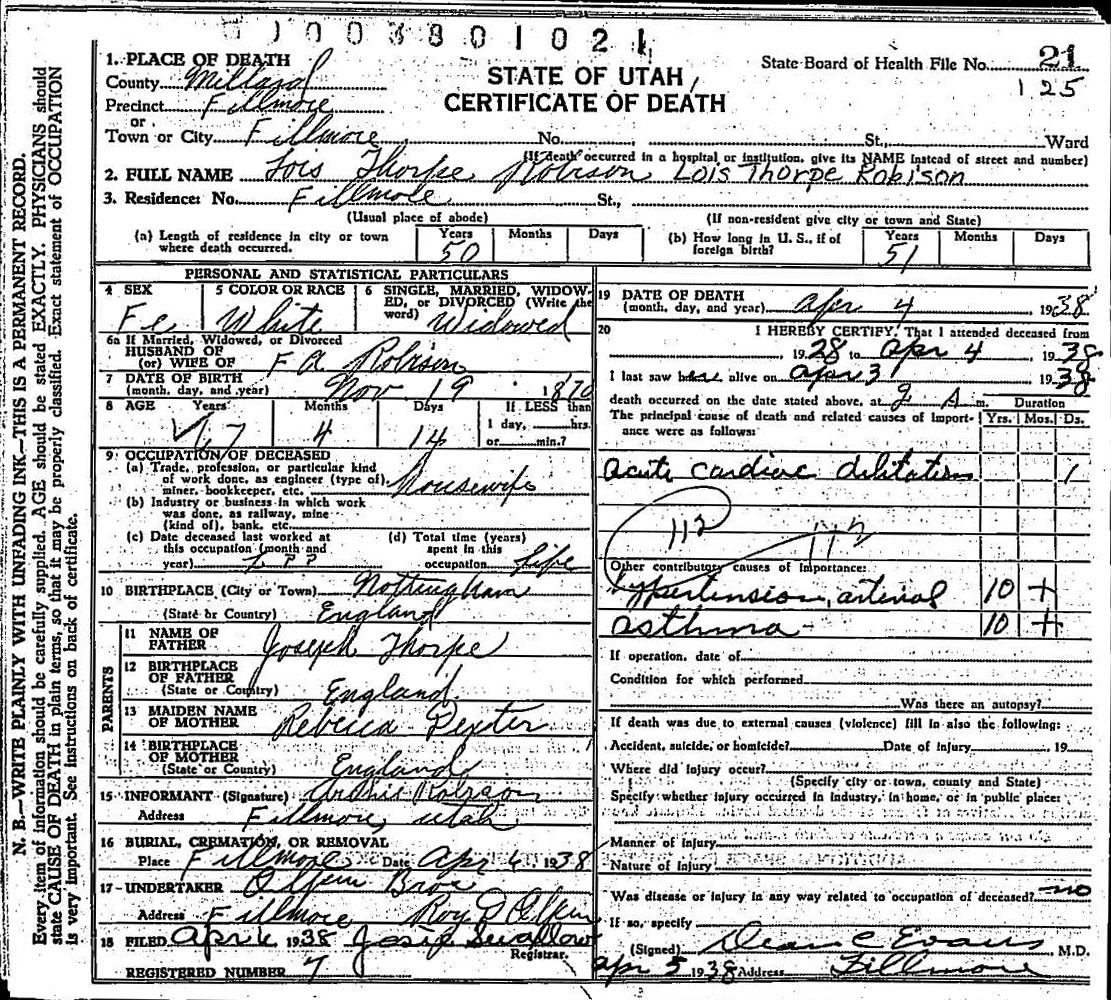 1003801021
1. PLACE OF DEATH
County Millard
Precinct Fillmore
or
Town or City Fillmore No. St., Ward
STATE OF UTAH
CERTIFICATE OF DEATH
State Board of Health File No. 21
125
(If death occurred in a hospital or institution, give its NAME instead of street and number)
2. FULL NAME Lois Thorpe Robison Lois Thorpe Robison
3. Residence: No. Fillmore St.,
(Usual place of abode) (If non-resident give city or town and State)
(a) Length of residence in city or town where death occurred. Years 50 Months Days
(b) How long in U. S., if of foreign birth? Years 51 Months Days
PERSONAL AND STATISTICAL PARTICULARS
4 SEX Fe
5 COLOR OR RACE White
6 SINGLE, MARRIED, WIDOWED, or DIVORCED (Write the word) Widowed
6a If Married, Widowed, or Divorced
HUSBAND OF
(or) WIFE OF F A Robison
7 DATE OF BIRTH
(month, day, and year) Nov 19 1870
8 AGE Years 67 Months 4 Days 14 If LESS than
1 day, hrs.
or min.?
9 OCCUPATION OF DECEASED
(a) Trade, profession, or particular kind
of work done, as engineer (type of),
miner, bookkeeper, etc. Housewife
(b) Industry or business in which work
was done, as railway, mine
(kind of), bank, etc.
(c) Date deceased last worked at
this occupation (month and
year) ??
(d) Total time (years)
spent in this
occupation life
10 BIRTHPLACE (City or Town) Nottingham
(State or Country) England
PARENTS
11 NAME OF
FATHER Joseph Thorpe
12 BIRTHPLACE
OF FATHER
(State or Country) England
13 MAIDEN NAME
OF MOTHER Rebecca Dexter
14 BIRTHPLACE
OF MOTHER
(State or Country) England
15 INFORMANT (Signature) Robison
Address Fillmore, Utah
16 BURIAL, CREMATION, OR REMOVAL
Place Fillmore Date Apr 6 1938
17 UNDERTAKER Olpin Bros
Address Fillmore Roy D Olpin
18 FILED Apr 6 1938 Josie Swallow
Registrar.
REGISTERED NUMBER 7
19 DATE OF DEATH
(month, day, and year) Apr 4 1938
20 I HEREBY CERTIFY, That I attended deceased from
1928 to Apr 4 1938
I last saw her alive on Apr 3 1938
death occurred on the date stated above, at 2 A m. Duration
The principal cause of death and related causes of importance were as follows: Yrs. Mos. Ds.
acute cardiac dilitation 1
112
112
Other contributory causes of importance:
hypertension, arterial 10 +
asthma 10 +
If operation, date of
Condition for which performed
Was there an autopsy?
If death was due to external causes (violence) fill in also the following:
Accident, suicide, or homicide? Date of injury , 19
Where did injury occur?
(Specify city or town, county and State)
Specify whether injury occurred in industry, in home, or in public place:
Manner of injury
Nature of injury
Was disease or injury in any way related to occupation of deceased? no
If so, specify
(Signed) Dean C Evans M.D.
Apr 5 1938 Address Fillmore
N. B.—WRITE PLAINLY WITH UNFADING INK—THIS IS A PERMANENT RECORD.
Every item of information should be carefully supplied. AGE should be stated EXACTLY. PHYSICIANS should
state CAUSE OF DEATH in plain terms, so that it may be properly classified. Exact statement of OCCUPATION
is very important. See instructions on back of certificate.